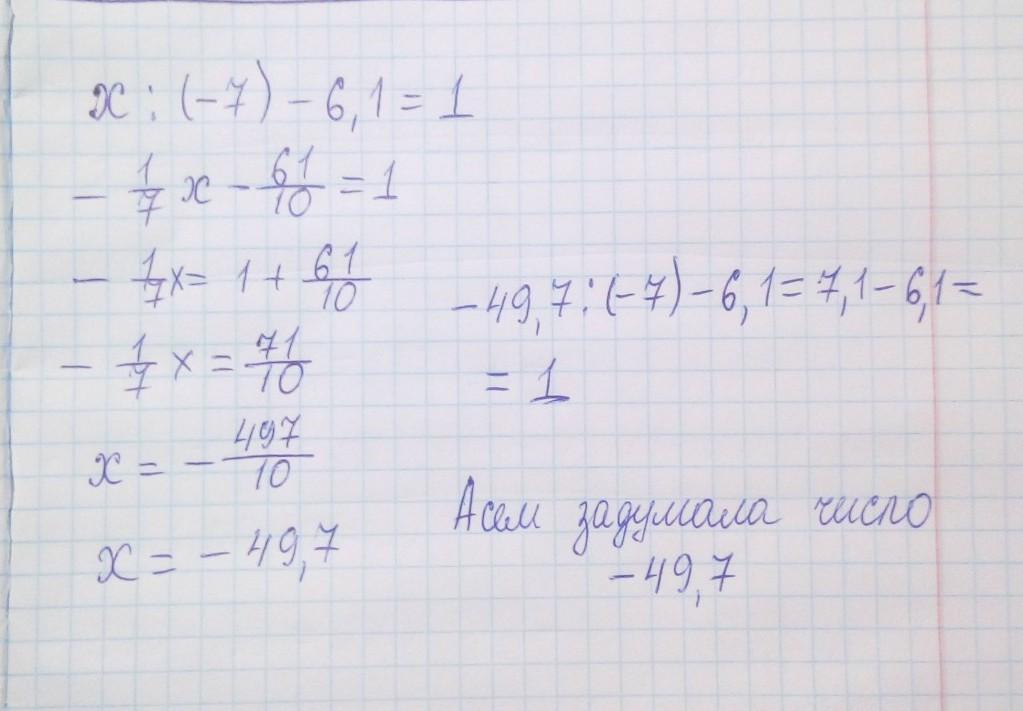 x : (-7) - 6,1 = 1
- 1/7 x - 61/10 = 1
- 1/7 x = 1 + 61/10
- 1/7 x = 71/10
x = - 497/10
x = - 49,7
-49,7 : (-7) - 6,1 = 7,1 - 6,1 =
= 1
Асем задумала число
-49,7